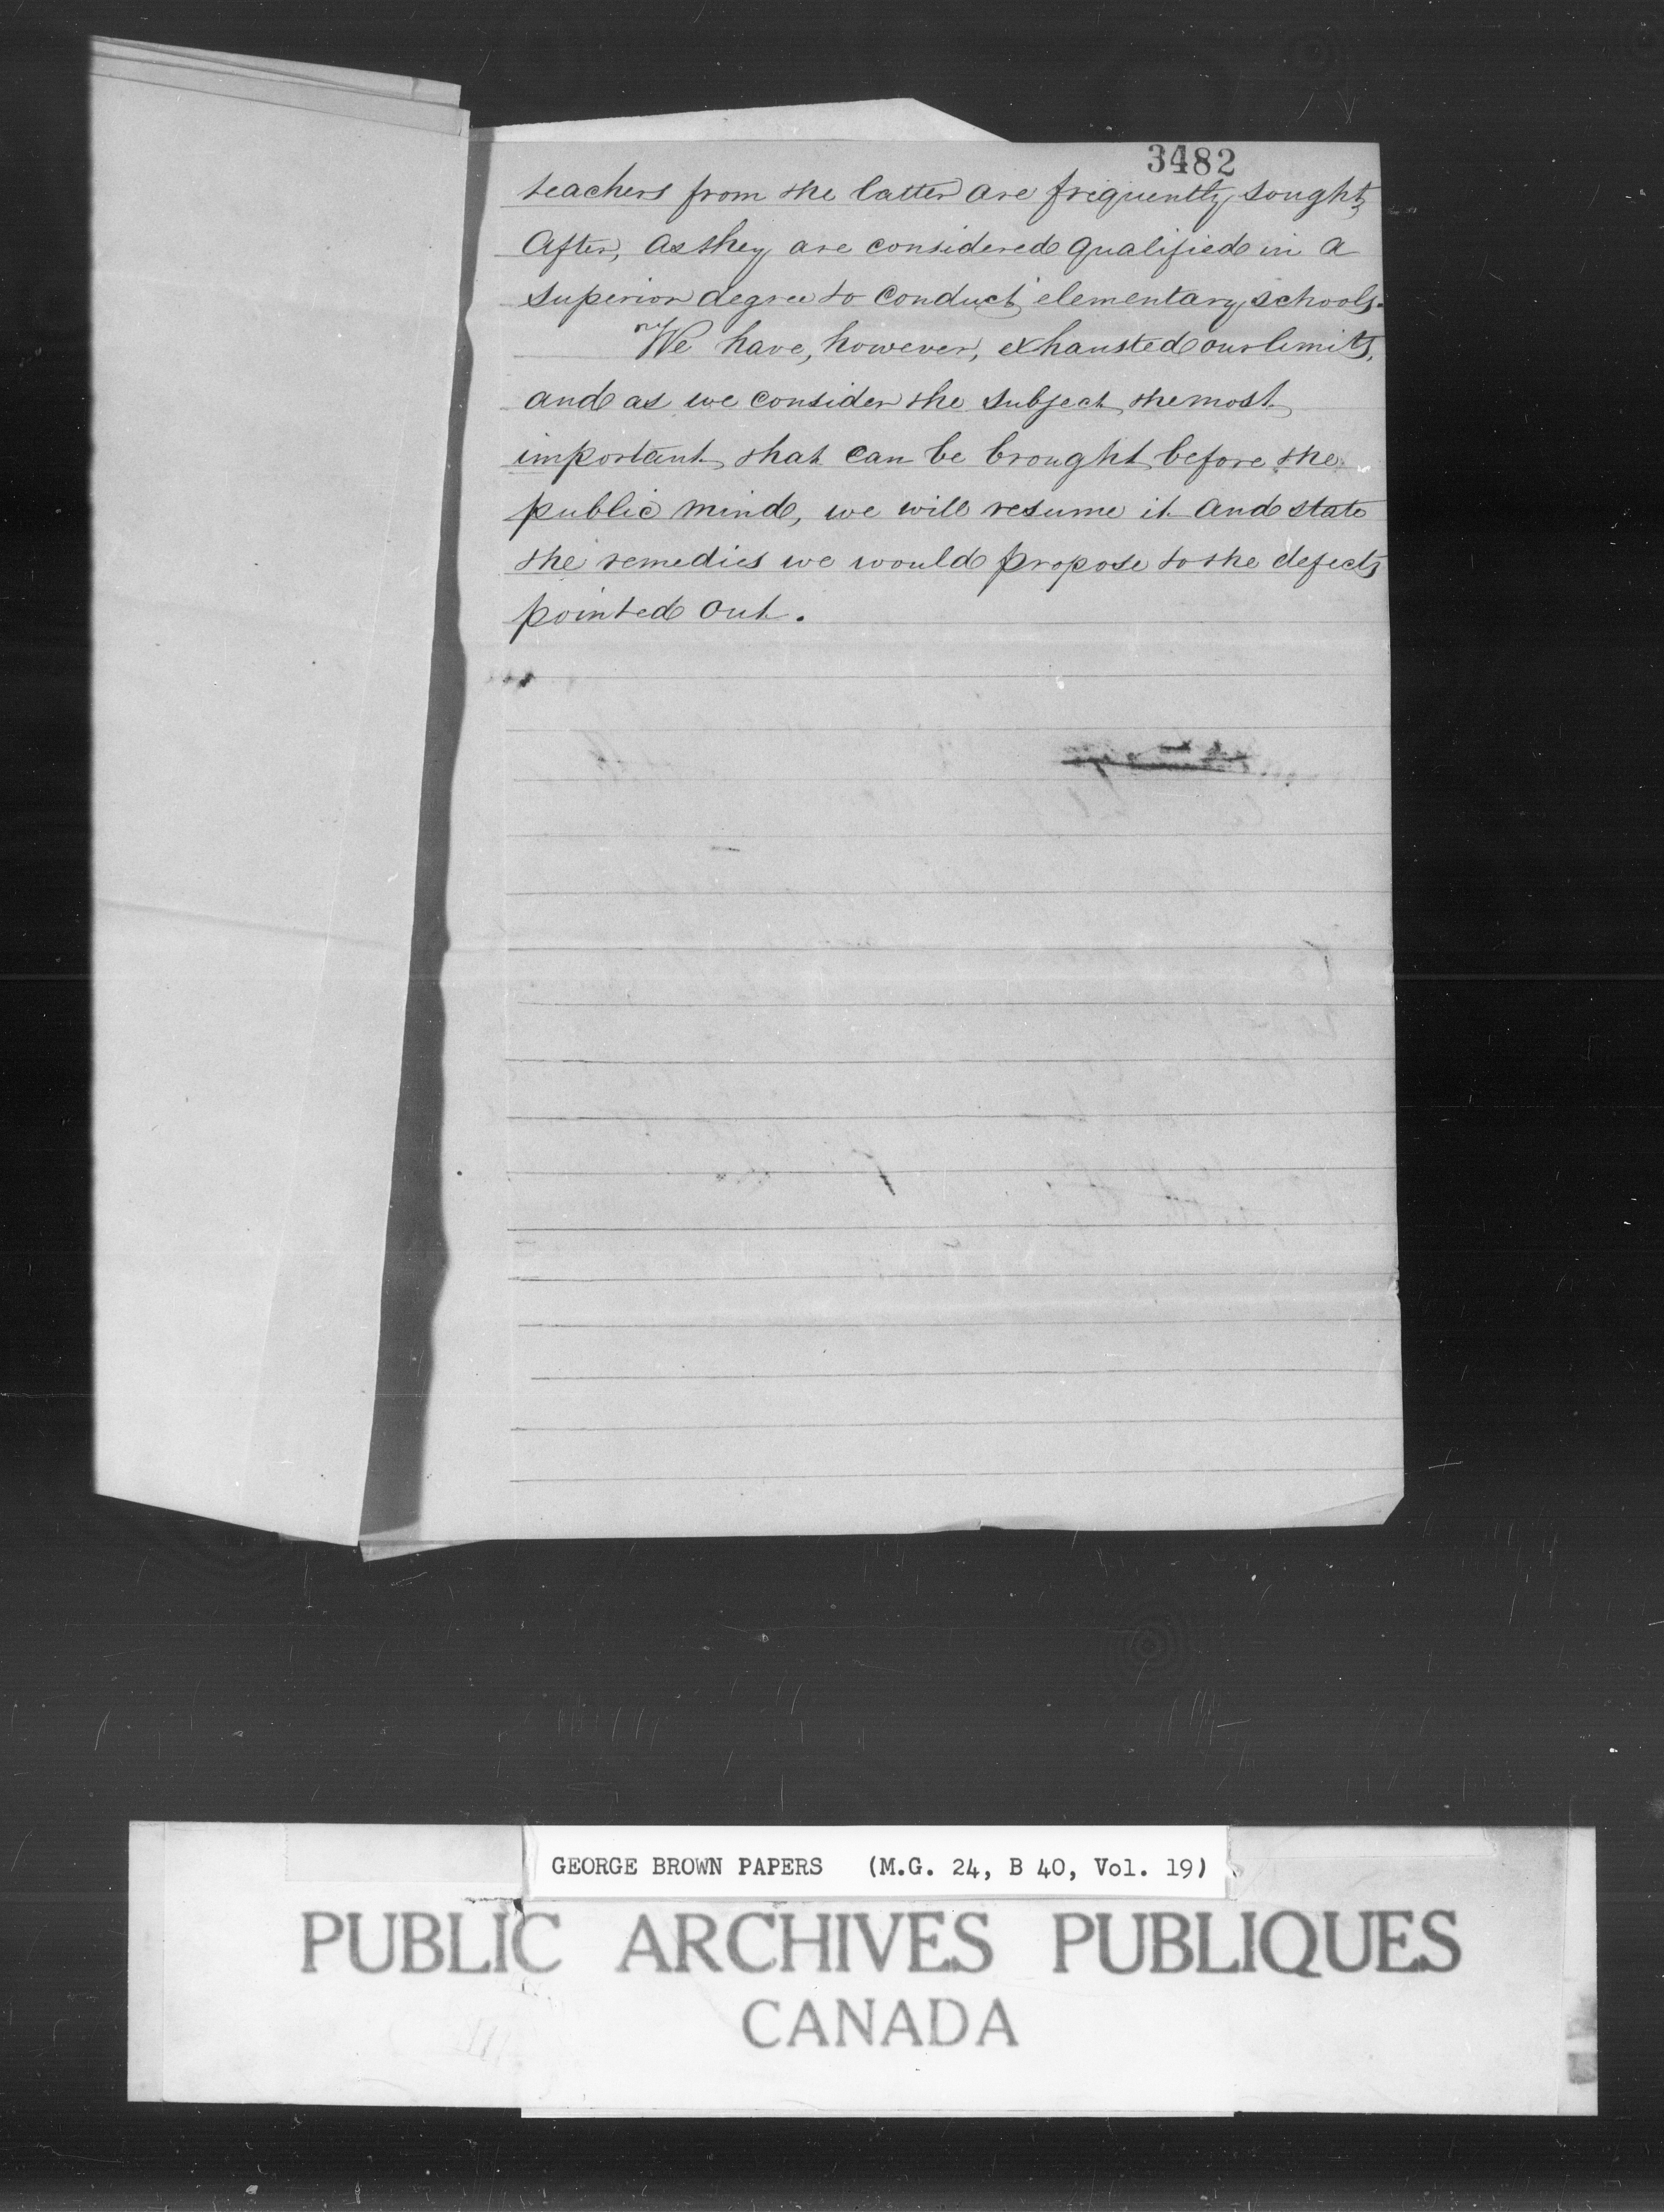 3482
teachers from the latter are frequently sought
After, as they are considered qualified in a
superior degree to conduct elementary schools.
We have, however, exhausted our limits,
and as we consider the subject the most
important that can be brought before the
public mind, we will resume it and state
the remedies we would propose to the defects
pointed out.
GEORGE BROWN PAPERS (M.G. 24, B 40, Vol. 19)
PUBLIC ARCHIVES PUBLIQUES
CANADA